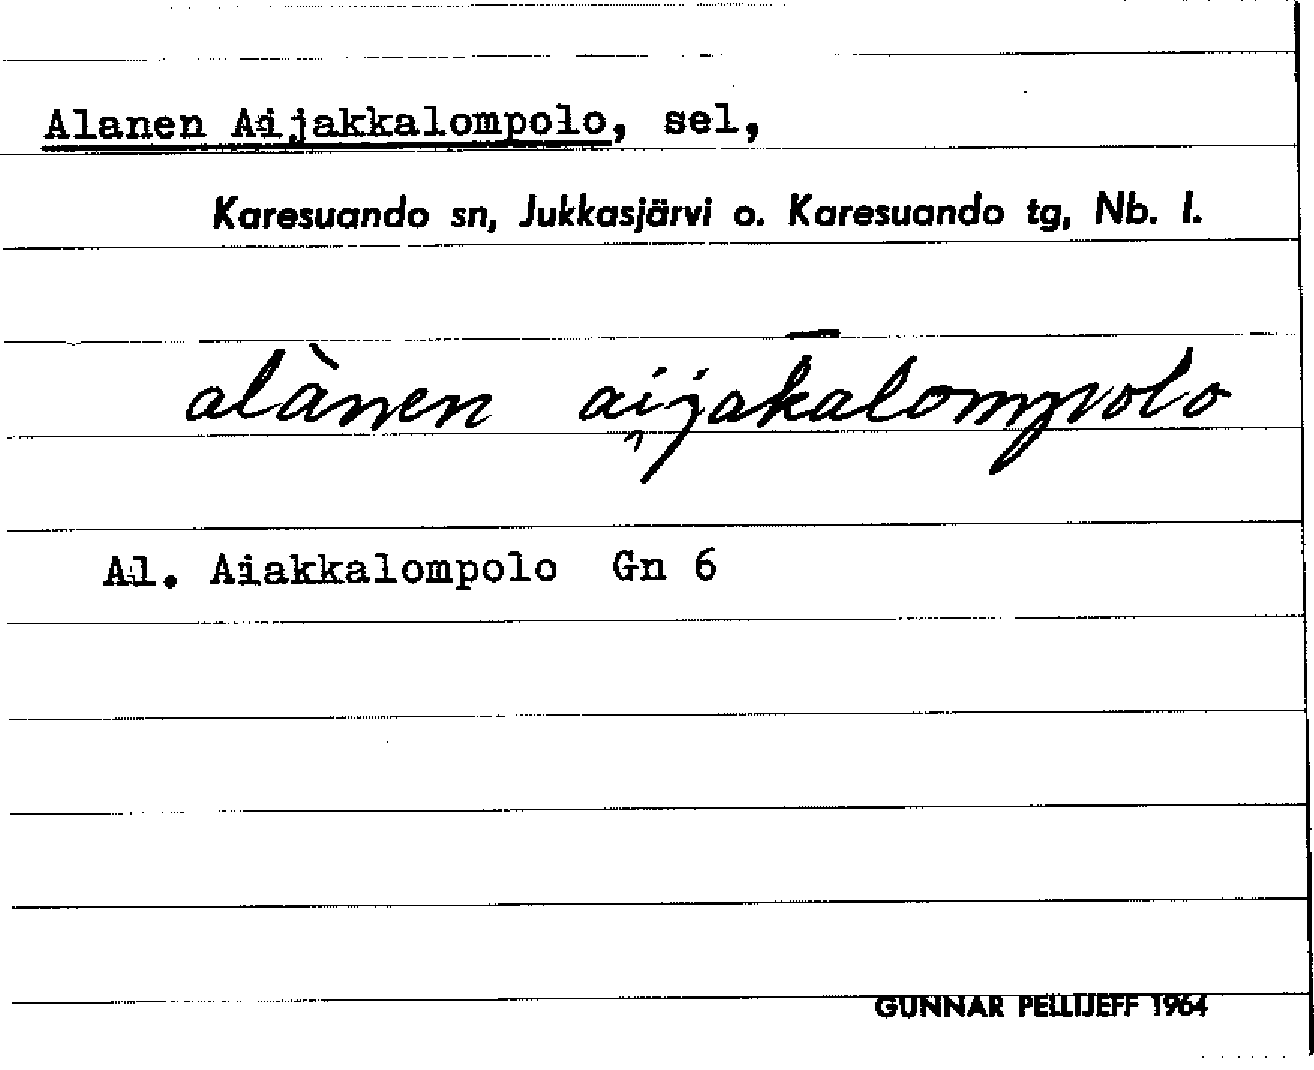 Alanen Aijakkalompolo, sel,
Karesuando sn, Jukkasjärvi o. Karesuando tg, Nb. l.
alànen ai̯jak̄alompolo
Al. Aiakkalompolo Gn 6
GUNNAR PELLIJEFF 1964